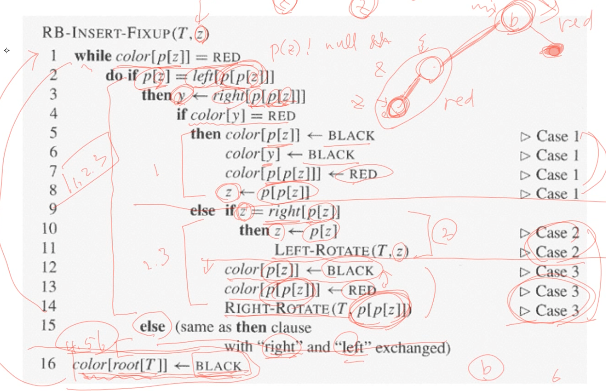 RB-INSERT-FIXUP(T, z)
1 while color[p[z]] = RED
2 do if p[z] = left[p[p[z]]]
3 then y ← right[p[p[z]]]
4 if color[y] = RED
5 then color[p[z]] ← BLACK ▷ Case 1
6 color[y] ← BLACK ▷ Case 1
7 color[p[p[z]]] ← RED ▷ Case 1
8 z ← p[p[z]] ▷ Case 1
9 else if z = right[p[z]]
10 then z ← p[z] ▷ Case 2
11 LEFT-ROTATE(T, z) ▷ Case 2
12 color[p[z]] ← BLACK ▷ Case 3
13 color[p[p[z]]] ← RED ▷ Case 3
14 RIGHT-ROTATE(T, p[p[z]]) ▷ Case 3
15 else (same as then clause
with "right" and "left" exchanged)
16 color[root[T]] ← BLACK
p(z)! null
b
red
z
red
1,2,3
1
2
2.3
4.5.6
b
6